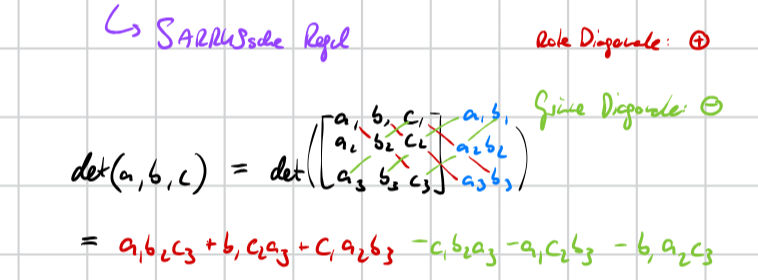 ↳ SARRUSsche Regel
Rote Diagonale: ⊕
Grüne Diagonale: ⊖
det(a, b, c) = det([a₁ b₁ c₁] a₁ b₁
a₂ b₂ c₂ a₂ b₂
a₃ b₃ c₃] a₃ b₃)
= a₁b₂c₃ + b₁c₂a₃ + c₁a₂b₃ - c₁b₂a₃ - a₁c₂b₃ - b₁a₂c₃